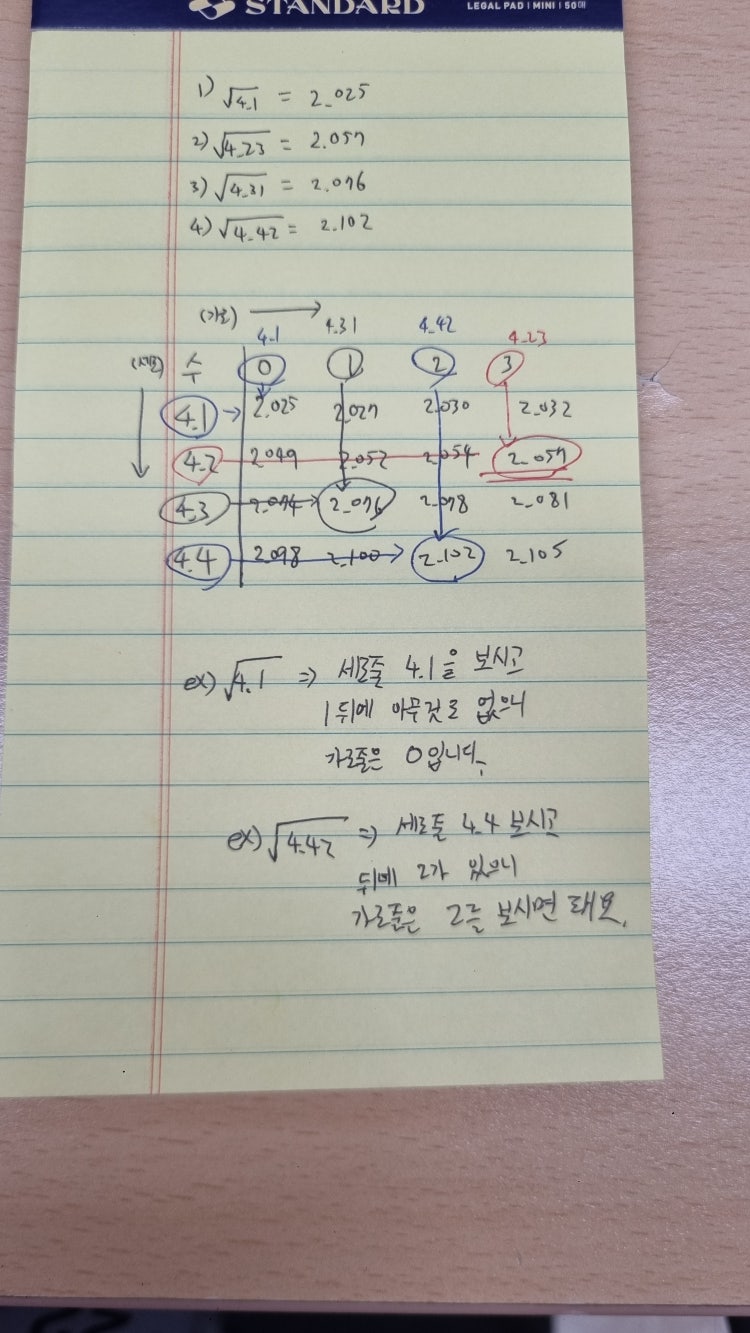 STANDARD
LEGAL PAD | MINI | 50매
1) √4.1 = 2.025
2) √4.23 = 2.057
3) √4.31 = 2.076
4) √4.42 = 2.102
(가로) →
4.1 4.31 4.42 4.23
(세로) 수 0 1 2 3
4.1 → 2.025 2.027 2.030 2.032
4.2 2.049 2.052 2.054 2.057
4.3 2.074 2.076 2.078 2.081
4.4 2.098 2.100 2.102 2.105
ex) √4.1 => 세로줄 4.1을 보시고
1 뒤에 아무것도 없으니
가로줄은 0입니다.
ex) √4.42 => 세로줄 4.4 보시고
뒤에 2가 있으니
가로줄은 2를 보시면 돼요.